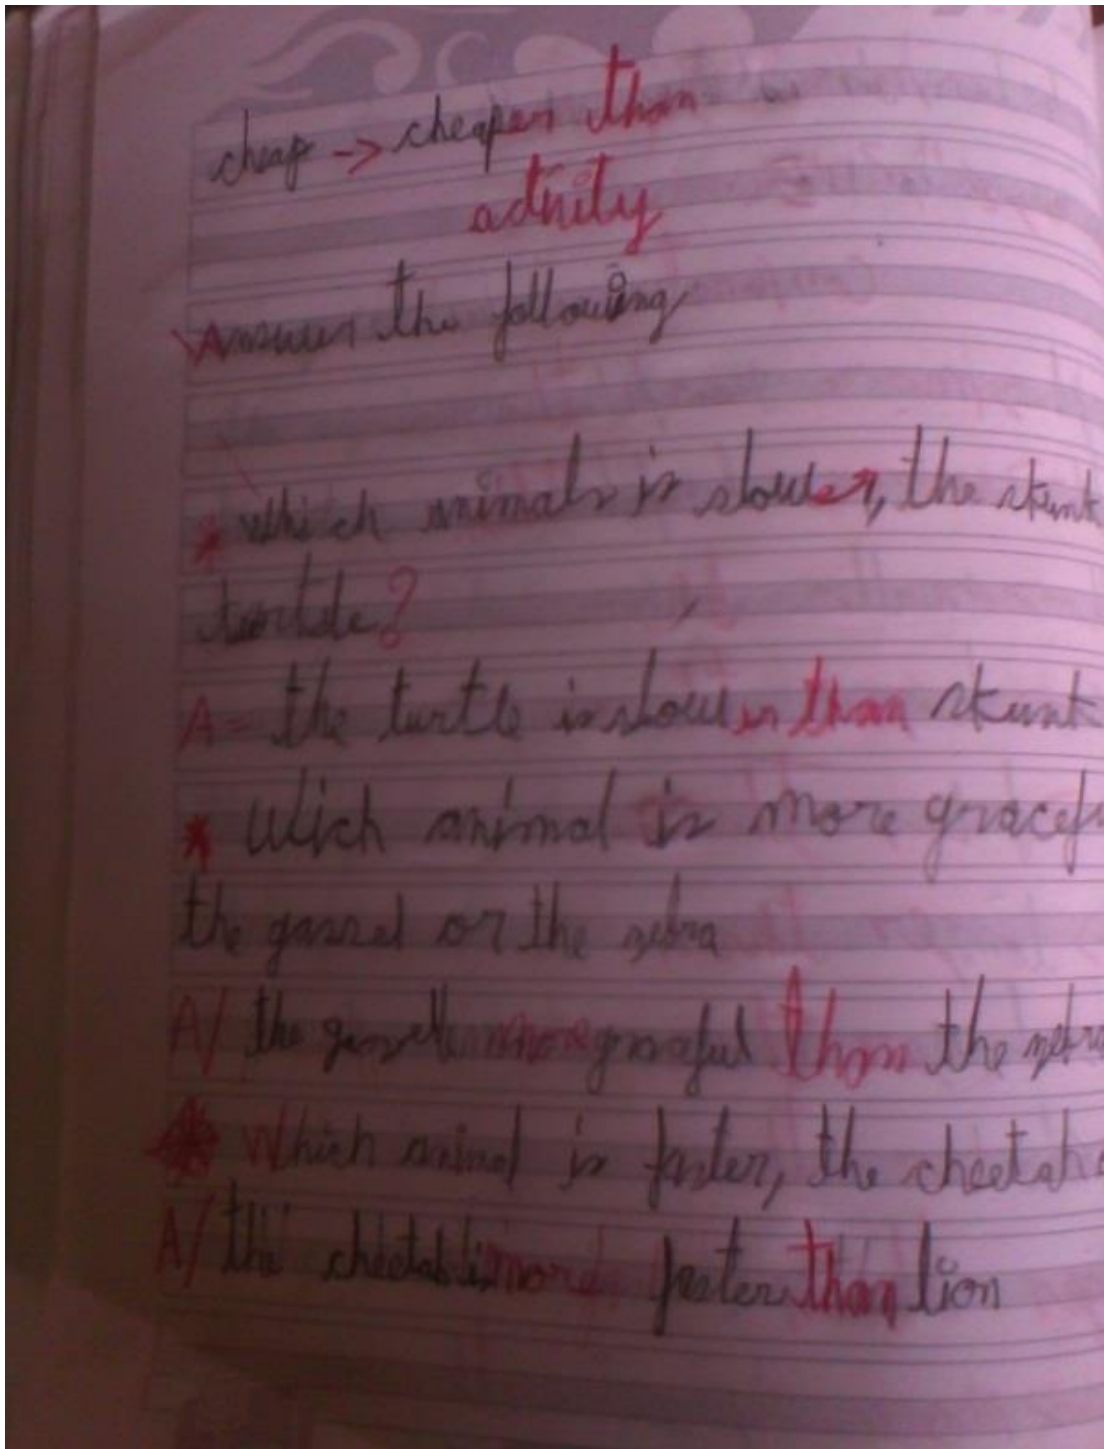 cheap -> cheaper than
activity
Answer the following
* which animals is slower, the skunk
turtle?
A= the turtle is slower than skunk
* Wich animal is more gracef
the gazzel or the zebra
A/ the gazelle more graceful than the zebra
* Which animal is faster, the cheetah
A/ the cheetah is more faster than lion